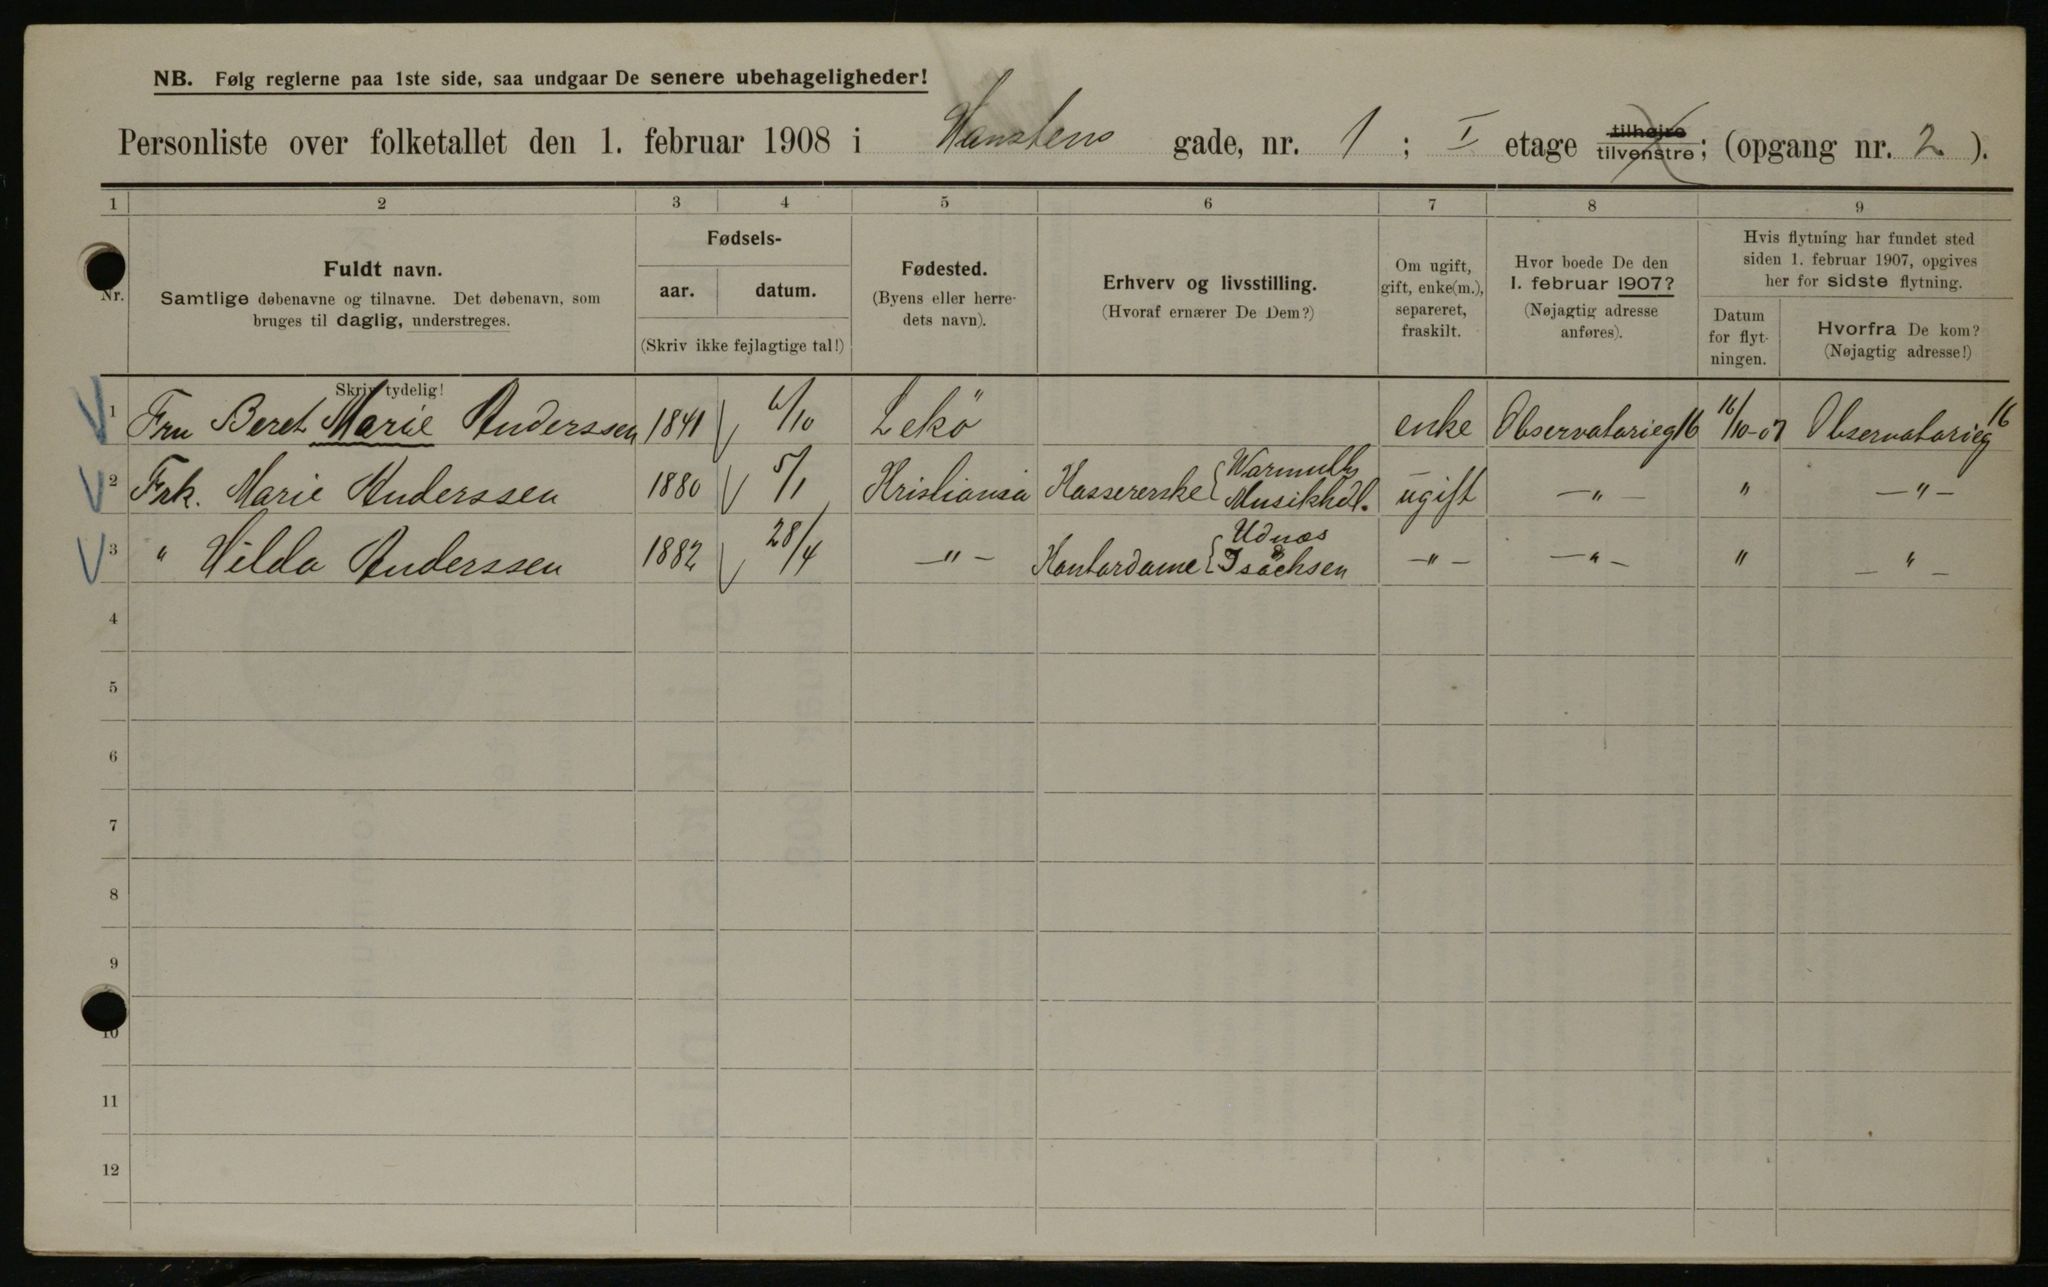 NB. Følg reglerne paa 1ste side, saa undgaar De senere ubehageligheder!
Personliste over folketallet den 1. februar 1908 i Hanstens gade, nr. 1; I etage tilhøjre tilvenstre; (opgang nr. 2).
1 2 3 4 5 6 7 8 9
Nr.
Fuldt navn.
Samtlige døbenavne og tilnavne. Det døbenavn, som
bruges til daglig, understreges.
Skriv tydelig!
Fødsels-
aar. datum.
(Skriv ikke fejlagtige tal!)
Fødested.
(Byens eller herre-
dets navn).
Erhverv og livsstilling.
(Hvoraf ernærer De Dem?)
Om ugift,
gift, enke(m.),
separeret,
fraskilt.
Hvor boede De den
1. februar 1907?
(Nøjagtig adresse
anføres).
Hvis flytning har fundet sted
siden 1. februar 1907, opgives
her for sidste flytning.
Datum
for flyt-
ningen.
Hvorfra De kom?
(Nøjagtig adresse!)
1 Fru Beret Marie Anderssen 1841 6/10 Lekö enke Observatorieg 16 16/10-07 Observatorieg 16
2 Frk. Marie Anderssen 1880 5/1 Kristiania Kassererske { Warmuths Musikhdl. ugift —"— " —"—
3 " Hilda Anderssen 1882 28/4 —"— Kontordame { Udnæs & Isachsen —"— —"— " —"—
4
5
6
7
8
9
10
11
12